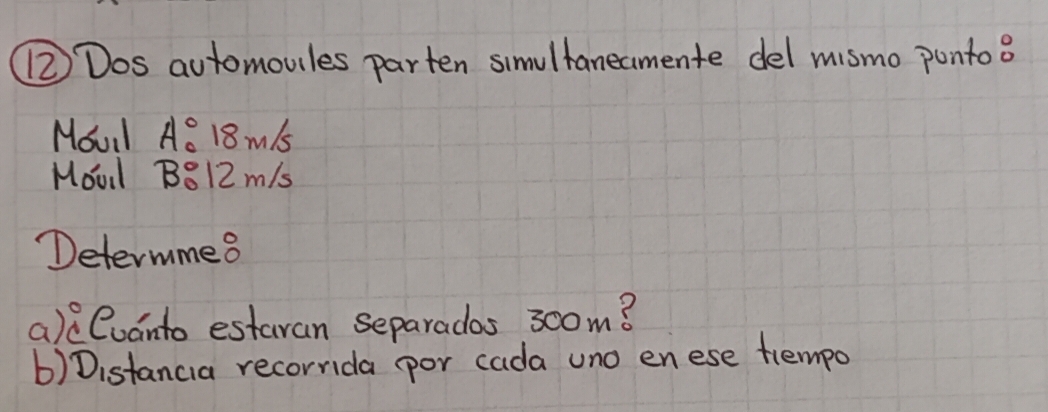 12 Dos automoviles parten simultaneamente del mismo punto:
Móvil A: 18 m/s
Móvil B: 12 m/s
Determine:
a) ¿Cuánto estaran separados 300m?
b) Distancia recorrida por cada uno en ese tiempo